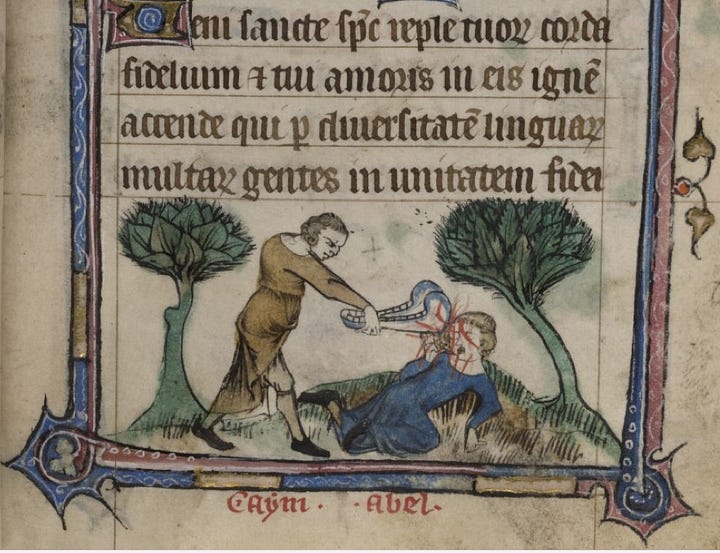 Veni sancte sp̄c reple tuoꝝ corda
fidelium ⁊ tui amoris in eis ignē
accende qui ꝑ diuersitatē linguaꝝ
multaꝝ gentes in unitatem fidei
Caym · · abel ·